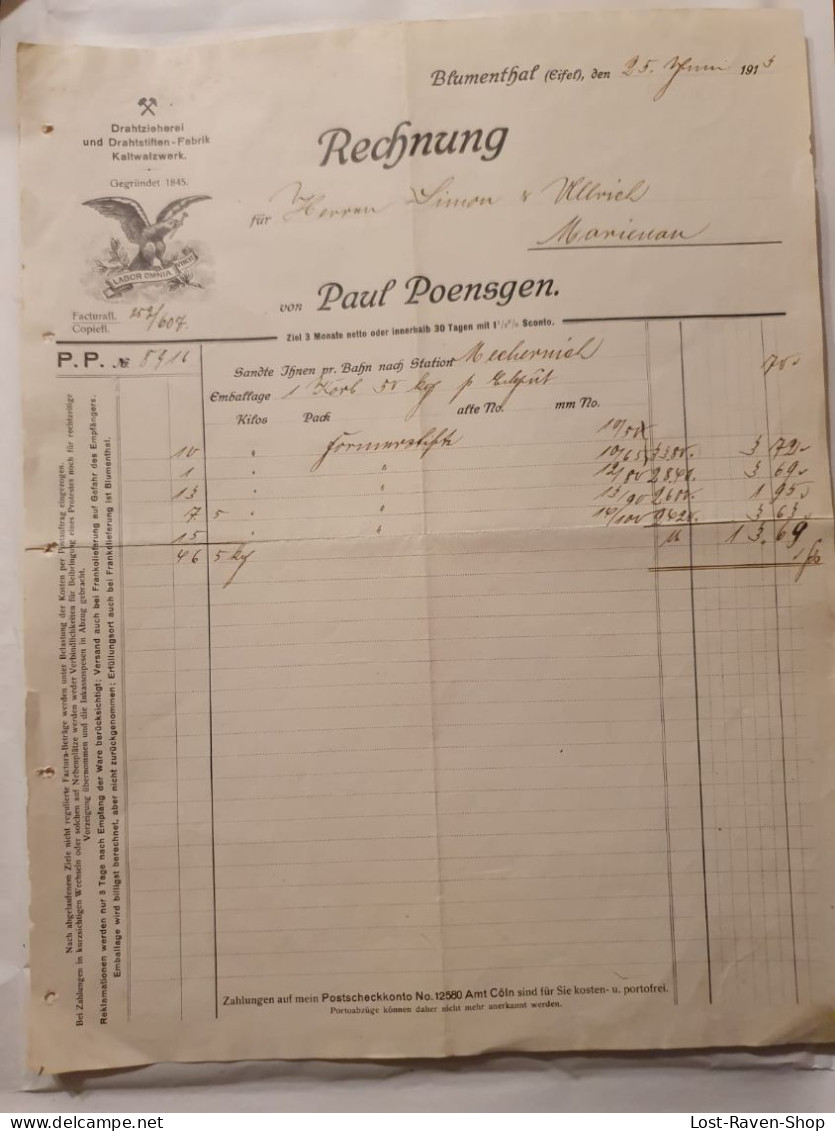 Blumenthal (Eifel), den 25. Juni 1913
Drahtzieherei
und Drahtstiften-Fabrik
Kaltwalzwerk.
Gegründet 1845.
LABOR OMNIA VINCIT
Rechnung
für Herren Simon & Ullrich
Marienau
von Paul Poensgen.
Facturafl. 252/607.
Copiefl.
Ziel 3 Monate netto oder innerhalb 30 Tagen mit 1½% Sconto.
P. P. №
Sandte Ihnen pr. Bahn nach Station Mechernich
Emballage 1 Korb 50 kg p Eilgut
Kilos Pack alte No. mm No.
10 " Formerstifte
1 " "
13 " "
7 5 " " 1 95
15 " " 3 63
46 5 kg 13.69
Nach abgelaufenem Ziele nicht regulierte Factura-Beträge werden unter Belastung der Kosten per Postauftrag eingezogen.
Bei Zahlungen in kurzsichtigen Wechseln oder solchen auf Nebenplätze werden weder Verbindlichkeiten für Beibringung eines Protestes noch für rechtzeitige
Vorzeigung übernommen und die Inkassospesen in Abzug gebracht.
Reklamationen werden nur 3 Tage nach Empfang der Ware berücksichtigt; Versand auch bei Frankolieferung auf Gefahr des Empfängers.
Emballage wird billigst berechnet, aber nicht zurückgenommen; Erfüllungsort auch bei Frankolieferung ist Blumenthal.
Zahlungen auf mein Postscheckkonto No. 12580 Amt Cöln sind für Sie kosten- u. portofrei.
Portoabzüge können daher nicht mehr anerkannt werden.
Lost-Raven-Shop